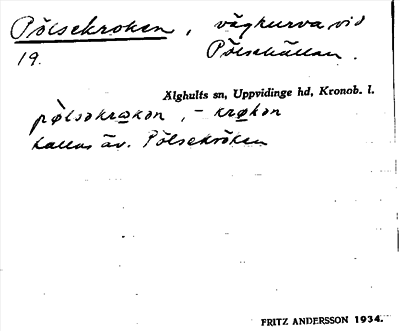 Pölsekroken, vägkurva vid
19. Pölsehällan.
Älghults sn, Uppvidinge hd, Kronob. l.
pø̀lsəkrɷkən, - krøkən
kallas äv. Pölsekröken
FRITZ ANDERSSON 1934.